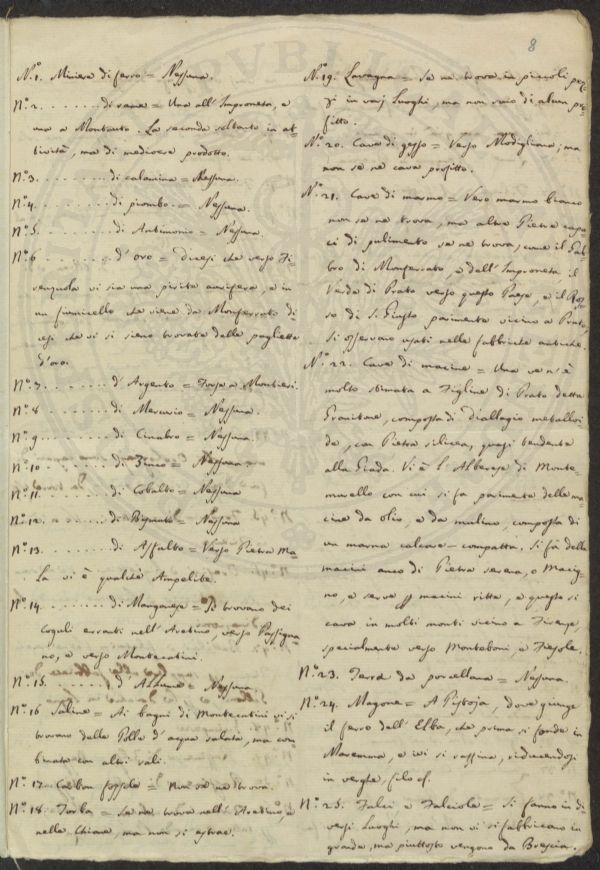 8
N.° 1. Miniera di ferro = Nessuna.
N.° 2 . . . . . . . di rame = Una all' Impruneta, e
una a Montauto. La seconda soltanto in at=
tività, ma di mediocre prodotto.
N.° 3 . . . . . . . . di calamina = Nessuna.
N.° 4 . . . . . . . . di piombo = Nessuna.
N.° 5 . . . . . . . . di Antimonio = Nessuna.
N.° 6 . . . . . . . . d' oro = dicesi che verso Fi=
renzuola vi sia una pirite aurifera, e in
un fiumicello che viene da Monferrato di
cesi che vi si sieno trovate delle pagliette
d'oro.
N.° 7 . . . . . . . . d' Argento = Forse a Montieri.
N.° 8 . . . . . . . . di Mercurio = Nessuna.
N.° 9 . . . . . . . . di Cinabro = Nessuna.
N.° 10 . . . . . . . di Zinco = Nessuna.
N.° 11 . . . . . . . di Cobalto = Nessuna
N.° 12 . . . . . . . di Bismuto = Nessuna
N.° 13 . . . . . . . di Asfalto = Verso Pietra Ma=
la vi è qualche Ampelite.
N.° 14 . . . . . . . di Manganese = Si trovano dei
coguli erranti nell' Aretino, verso Passigna=
no, e verso Montecatini.
N.° 15 . . . . . . . d' Allume = Nessuna
N.° 16 Saline = Ai bagni di Montecatini vi si
trovano delle Polle d' acqua salata, ma com
binata con altri sali.
N.° 17. Carbon fossile = Non se ne trova.
N.° 18. Torba = Se ne trova nell' Aretino, e
nelle Chiane, ma non si estrae.
N.° 19. Lavagna = Se ne trova in piccoli pez=
zi in varj Luoghi, ma non sono di alcun pro=
fitto.
N.° 20. Cave di gesso = Verso Modigliana, ma
non se ne cava profitto.
N.° 21. Cave di marmo = Vero marmo bianco
non se ne trova, ma altre Pietre capa
ci di pulimento se ne trova, come il Gab=
bro di Monferrato, e dell' Impruneta il
Verde di Prato verso questo Paese, e il Ros=
so di S. Giusto parimente vicino a Prato
si osservano usati nelle fabbriche antiche.
N.° 22. Cave di macine = Una ve n' è
molto stimata a Figline di Prato detta
Granitone, composta di diallagio metalloi
de, con Pietra silicea, quasi tendente
alla Giada. Vi è l' Alberese di Monte=
murello con cui si fa parimente delle ma=
cine da olio, e da mulino, composta di
un marna calcare-compatta. Si fa delle
macini anco di Pietra serena, o Macig=
no, e serve p macini ritte, e questa si
cava in molti monti vicino a Firenze,
specialmente verso Monteboni, e Fiesole.
N.° 23. Terra da porcellana = Nessuna.
N.° 24. Magone = A Pistoja, dove giunge
il ferro dell' Elba, che prima si fonde in
Maremma, e ivi si raffina, riducendosi
in verghe, filo ec.
N.° 25. Falci e Falciole = Si fanno in di=
versi Luoghi, ma non vi si fabbricano in
grande, ma piuttosto vengono da Brescia.